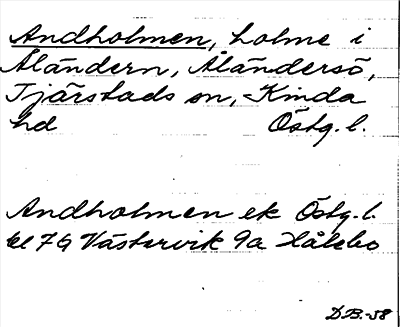 Andholmen, holme i
Åländern, Åländersö,
Tjärstads sn, Kinda
hd Östg. l.
Andholmen ek Östg. l.
bl 79 Västervik 9a Hålebo
D.B.-58